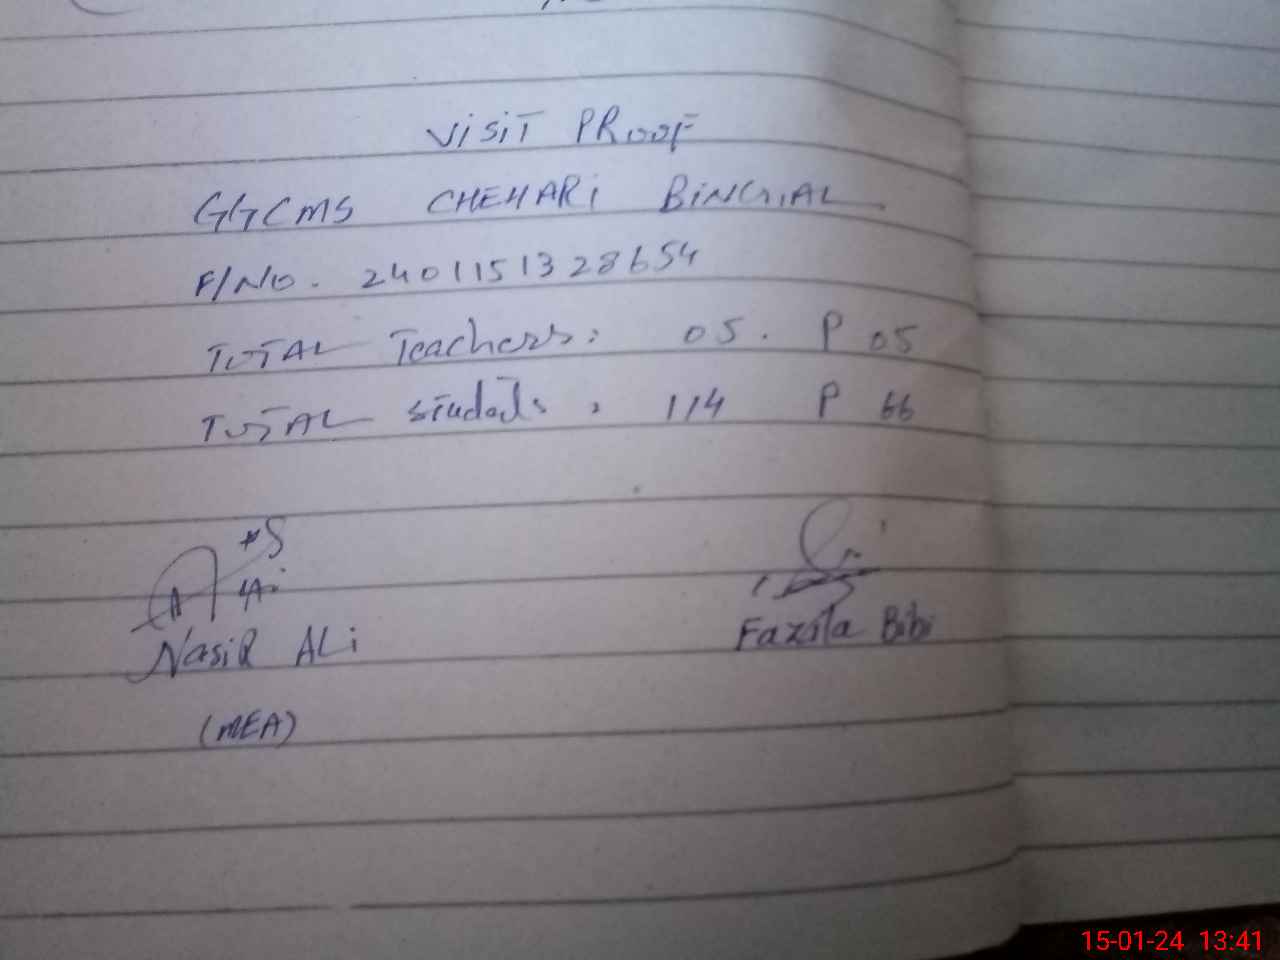 VISIT PROOF
GGCMS CHEHARI BINGIAL.
F/NO. 2401151328654
TOTAL Teachers: 05. P 05
TOTAL Students: 114 P 66
Nasir Ali
Fazila Bibi
(MEA)
15-01-24 13:41